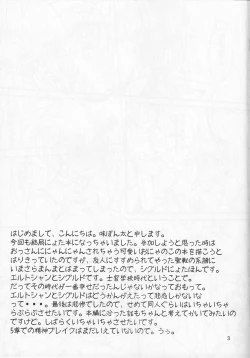 はじめまして、こんにちは。味ぽん太と申します。
今回も結局にょた本になっちゃいました。参加しようと思った時は
おっさんににゃんにゃんされちゃう可愛いおにゃのこの本を描こうと
はりきっていたのですが、友人にすすめられてやった聖戦の系譜に
いまさらまんまとはまってしまったので、シグルドにょたほんです。
エルトシャンとシグルドです。士官学校時代ということで。
だってその時代が一番幸せだったんじゃないかなっておもって。
エルトシャンとシグルドはどうかんがえたって悲恋しかないな
って・・・。最後は悲惨でしたので、せめて同人ぐらいはいちゃいちゃ
らぶらぶさせたいです。本編に沿った話もちゃんとかいてみたいの
ですけど。しばらくいちゃいちゃさせたいです。
5章での精神ブレイクはまだいえていないので。うぅ。
3